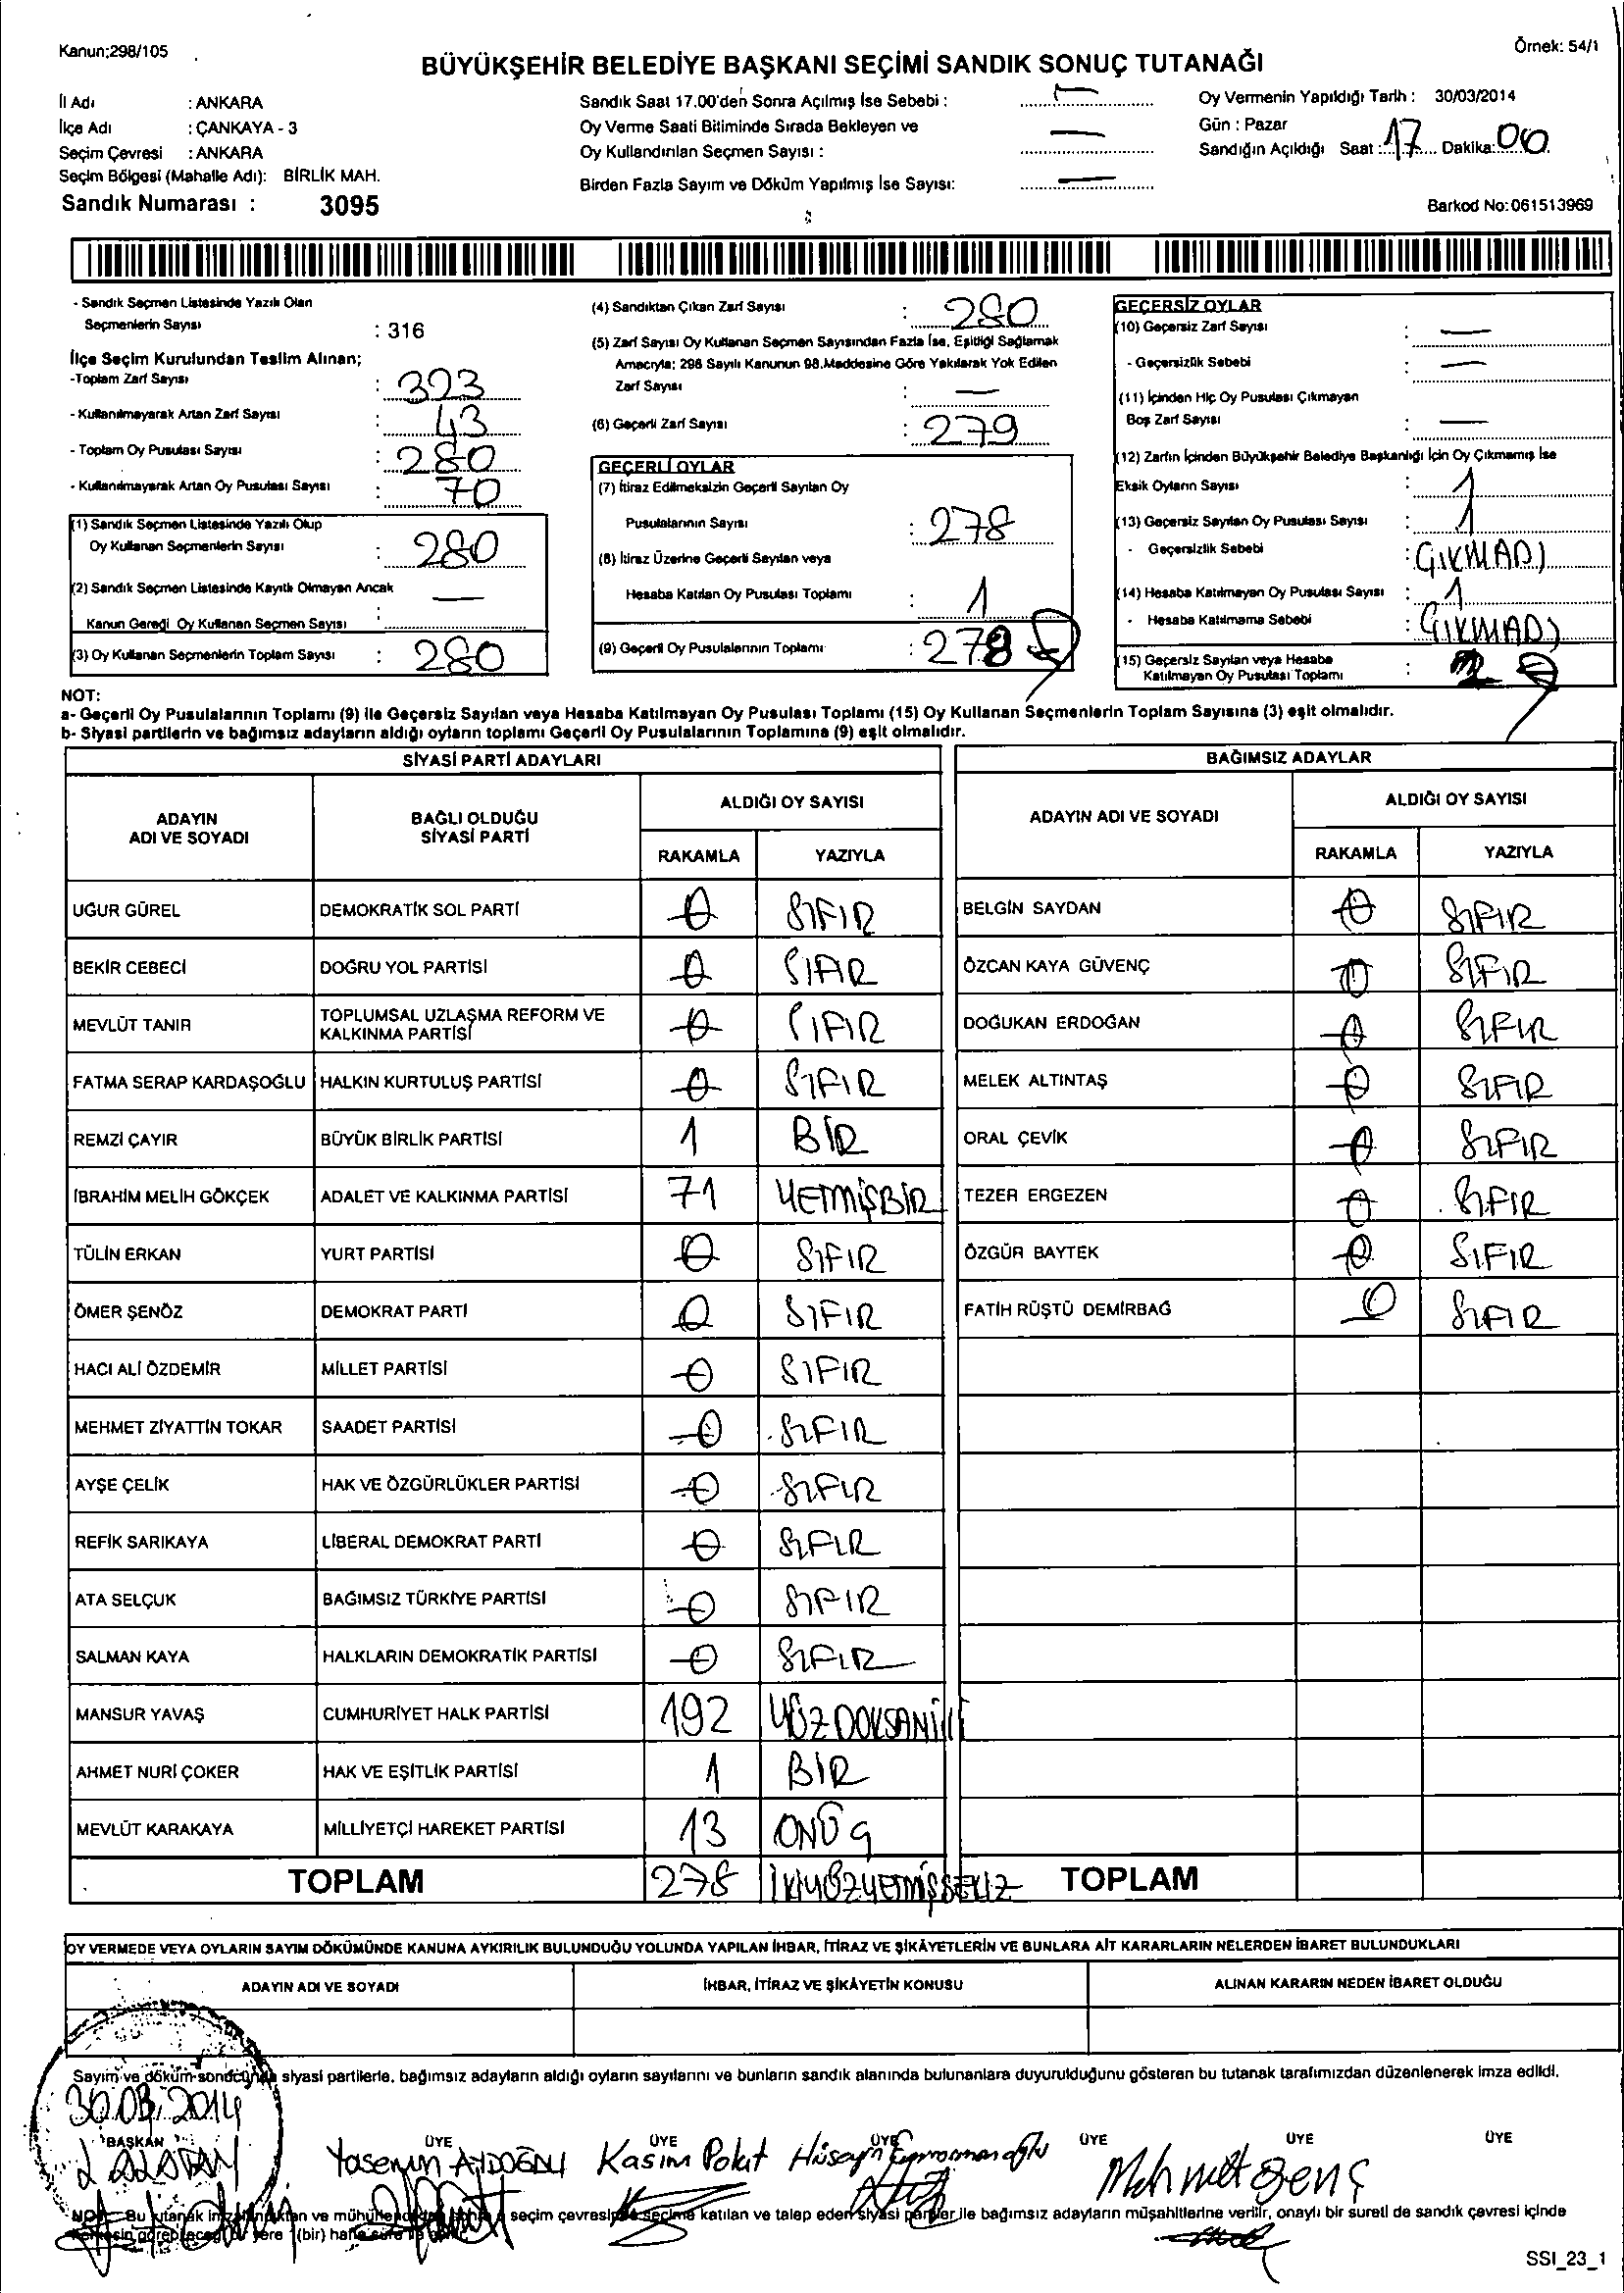 Kanun:298/105
Örnek: 54/1
BÜYÜKŞEHİR BELEDİYE BAŞKANI SEÇİMİ SANDIK SONUÇ TUTANAĞI
İl Adı : ANKARA
İlçe Adı : ÇANKAYA - 3
Seçim Çevresi : ANKARA
Seçim Bölgesi (Mahalle Adı): BİRLİK MAH.
Sandık Numarası : 3095
Sandık Saat 17.00'den Sonra Açılmış İse Sebebi : —
Oy Verme Saati Bitiminde Sırada Bekleyen ve
Oy Kullandırılan Seçmen Sayısı : —
Birden Fazla Sayım ve Döküm Yapılmış İse Sayısı: —
Oy Vermenin Yapıldığı Tarih : 30/03/2014
Gün : Pazar
Sandığın Açıldığı Saat : 17 Dakika: 00
Barkod No:061513969
- Sandık Seçmen Listesinde Yazılı Olan
Seçmenlerin Sayısı : 316
İlçe Seçim Kurulundan Teslim Alınan;
-Toplam Zarf Sayısı : 323
- Kullanılmayarak Artan Zarf Sayısı : 43
- Toplam Oy Pusulası Sayısı : 280
- Kullanılmayarak Artan Oy Pusulası Sayısı : 70
(1) Sandık Seçmen Listesinde Yazılı Olup
Oy Kullanan Seçmenlerin Sayısı : 280
(2) Sandık Seçmen Listesinde Kayıtlı Olmayan Ancak
Kanun Gereği Oy Kullanan Seçmen Sayısı : —
(3) Oy Kullanan Seçmenlerin Toplam Sayısı : 280
(4) Sandıktan Çıkan Zarf Sayısı : 280
(5) Zarf Sayısı Oy Kullanan Seçmen Sayısından Fazla İse, Eşitliği Sağlamak
Amacıyla; 298 Sayılı Kanunun 98.Maddesine Göre Yakılarak Yok Edilen
Zarf Sayısı : —
(6) Geçerli Zarf Sayısı : 279
GEÇERLİ OYLAR
(7) İtiraz Edilmeksizin Geçerli Sayılan Oy
Pusulalarının Sayısı : 278
(8) İtiraz Üzerine Geçerli Sayılan veya
Hesaba Katılan Oy Pusulası Toplamı : 1
(9) Geçerli Oy Pusulalarının Toplamı : 278
GEÇERSİZ OYLAR
(10) Geçersiz Zarf Sayısı : —
- Geçersizlik Sebebi : —
(11) İçinden Hiç Oy Pusulası Çıkmayan
Boş Zarf Sayısı : —
(12) Zarfın İçinden Büyükşehir Belediye Başkanlığı İçin Oy Çıkmamış İse
Eksik Oyların Sayısı : 1
(13) Geçersiz Sayılan Oy Pusulası Sayısı : 1
- Geçersizlik Sebebi : ÇIKMADI
(14) Hesaba Katılmayan Oy Pusulası Sayısı : 1
- Hesaba Katılmama Sebebi : ÇIKMADI
(15) Geçersiz Sayılan veya Hesaba
Katılmayan Oy Pusulası Toplamı : 2
NOT:
a- Geçerli Oy Pusulalarının Toplamı (9) ile Geçersiz Sayılan veya Hesaba Katılmayan Oy Pusulası Toplamı (15) Oy Kullanan Seçmenlerin Toplam Sayısına (3) eşit olmalıdır.
b- Siyasi partilerin ve bağımsız adayların aldığı oyların toplamı Geçerli Oy Pusulalarının Toplamına (9) eşit olmalıdır.
SİYASİ PARTİ ADAYLARI
ADAYIN ADI VE SOYADI BAĞLI OLDUĞU SİYASİ PARTİ ALDIĞI OY SAYISI
RAKAMLA YAZIYLA
UĞUR GÜREL DEMOKRATİK SOL PARTİ 0 SIFIR
BEKİR CEBECİ DOĞRU YOL PARTİSİ 0 SIFIR
MEVLÜT TANIR TOPLUMSAL UZLAŞMA REFORM VE KALKINMA PARTİSİ 0 SIFIR
FATMA SERAP KARDAŞOĞLU HALKIN KURTULUŞ PARTİSİ 0 SIFIR
REMZİ ÇAYIR BÜYÜK BİRLİK PARTİSİ 1 BİR
İBRAHİM MELİH GÖKÇEK ADALET VE KALKINMA PARTİSİ 71 YETMİŞBİR
TÜLİN ERKAN YURT PARTİSİ 0 SIFIR
ÖMER ŞENÖZ DEMOKRAT PARTİ 0 SIFIR
HACI ALİ ÖZDEMİR MİLLET PARTİSİ 0 SIFIR
MEHMET ZİYATTİN TOKAR SAADET PARTİSİ 0 SIFIR
AYŞE ÇELİK HAK VE ÖZGÜRLÜKLER PARTİSİ 0 SIFIR
REFİK SARIKAYA LİBERAL DEMOKRAT PARTİ 0 SIFIR
ATA SELÇUK BAĞIMSIZ TÜRKİYE PARTİSİ 0 SIFIR
SALMAN KAYA HALKLARIN DEMOKRATİK PARTİSİ 0 SIFIR
MANSUR YAVAŞ CUMHURİYET HALK PARTİSİ 192 YÜZDOKSANİKİ
AHMET NURİ ÇOKER HAK VE EŞİTLİK PARTİSİ 1 BİR
MEVLÜT KARAKAYA MİLLİYETÇİ HAREKET PARTİSİ 13 ONÜÇ
TOPLAM 278 İKİYÜZYETMİŞSEKİZ
BAĞIMSIZ ADAYLAR
ADAYIN ADI VE SOYADI ALDIĞI OY SAYISI
RAKAMLA YAZIYLA
BELGİN SAYDAN 0 SIFIR
ÖZCAN KAYA GÜVENÇ 0 SIFIR
DOĞUKAN ERDOĞAN 0 SIFIR
MELEK ALTINTAŞ 0 SIFIR
ORAL ÇEVİK 0 SIFIR
TEZER ERGEZEN 0 SIFIR
ÖZGÜR BAYTEK 0 SIFIR
FATİH RÜŞTÜ DEMİRBAĞ 0 SIFIR
TOPLAM
OY VERMEDE VEYA OYLARIN SAYIM DÖKÜMÜNDE KANUNA AYKIRILIK BULUNDUĞU YOLUNDA YAPILAN İHBAR, İTİRAZ VE ŞİKÂYETLERİN VE BUNLARA AİT KARARLARIN NELERDEN İBARET BULUNDUKLARI
ADAYIN ADI VE SOYADI İHBAR, İTİRAZ VE ŞİKÂYETİN KONUSU ALINAN KARARIN NEDEN İBARET OLDUĞU
Sayım ve döküm sonucunda siyasi partilerle, bağımsız adayların aldığı oyların sayılarını ve bunların sandık alanında bulunanlara duyurulduğunu gösteren bu tutanak tarafımızdan düzenlenerek imza edildi.
30.03.2014
BAŞKAN ÜYE ÜYE ÜYE ÜYE ÜYE ÜYE
Yasemin AYDOĞDU Kasım Polat Hüseyin Mehmet Genç
NOT: Bu tutanak imzalandıktan ve mühürlendikten sonra seçim çevresinde seçime katılan ve talep eden siyasi partiler ile bağımsız adayların müşahitlerine verilir, onaylı bir sureti de sandık çevresi içinde
herkesin görebileceği bir yere 1(bir) hafta süre ile asılır.
SSI_23_1